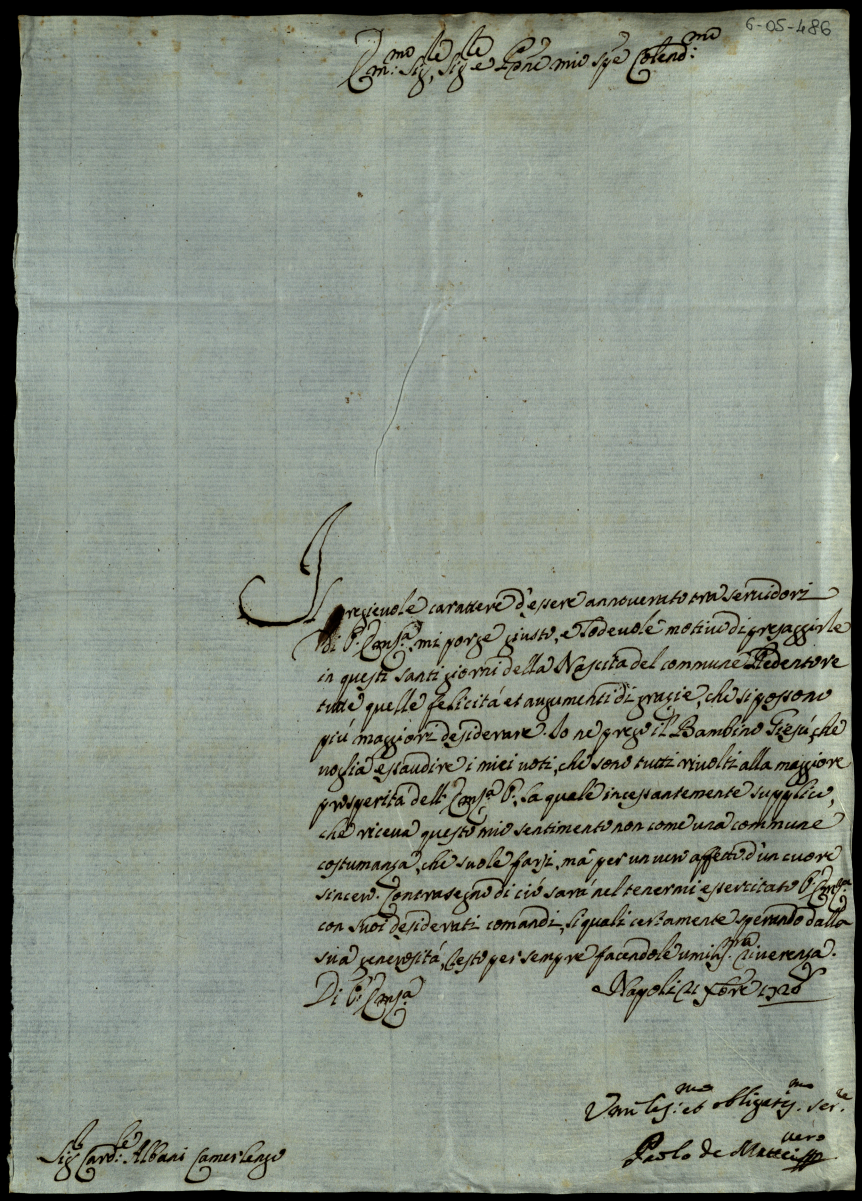 6-05-486
Em:mo Sig.le Sig.le e Pṙone mio Spe Colend:mo
Il pregievole carattere d'essere annoverato tra servidori
di V. Em.za mi porge giusto, e lodevole motivo di presaggirle
in questi santi giorni della Nascita del commune Redentore
tutte quelle felicitá et augumenti di grazie, che si possono
piú maggiori desiderare. Io ne prego il Bambino Giesú, che
voglia essaudire i miei voti, che sono tutti rivolti alla maggiore
prosperitá dell' Em.za V. la quale incessantemente supplico,
che riceva questo mio sentimento non come una commune
costumanza, che suole farsi, má per un vero affetto d'un cuore
sincero. Contrasegno di ció sará nel tenermi essercitato V. Em.za
con suoi desiderati comandi, li quali certamente sperando dalla
sua generositá, resto per sempre facendole umiliss.ma riverenza.
Di V. Em.za Napoli 21 Xbre 1728
Umiliss:mo et obligatiss.mo ser.re vero
Paolo de Matteis
Sig.r Card:le Albani Camerlengo